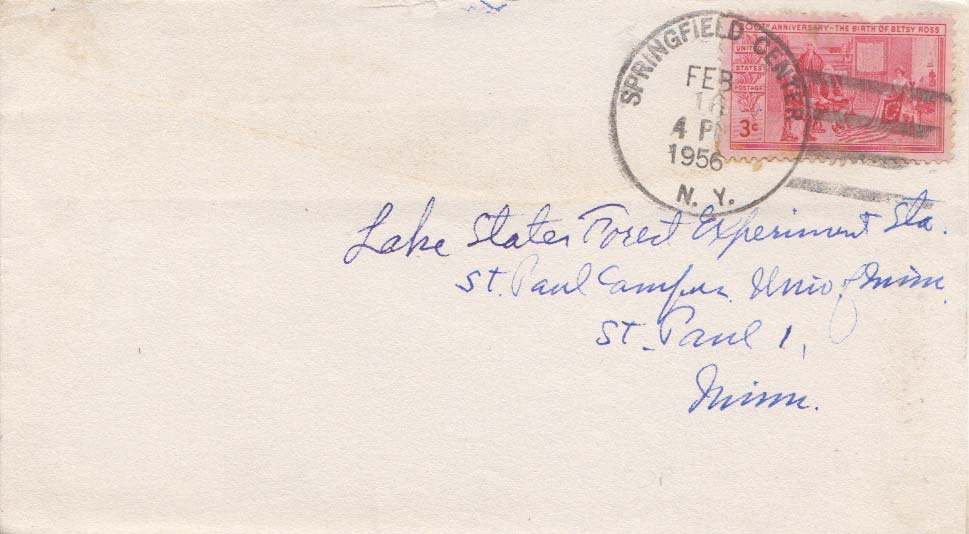 200TH ANNIVERSARY - THE BIRTH OF BETSY ROSS
UNITED
STATES
POSTAGE
3¢
SPRINGFIELD CENTER
FEB
4 PM
1956
N. Y.
Lake States Forest Experiment Sta.
St. Paul Campus Univ of Minn.
St. Paul 1,
Minn.